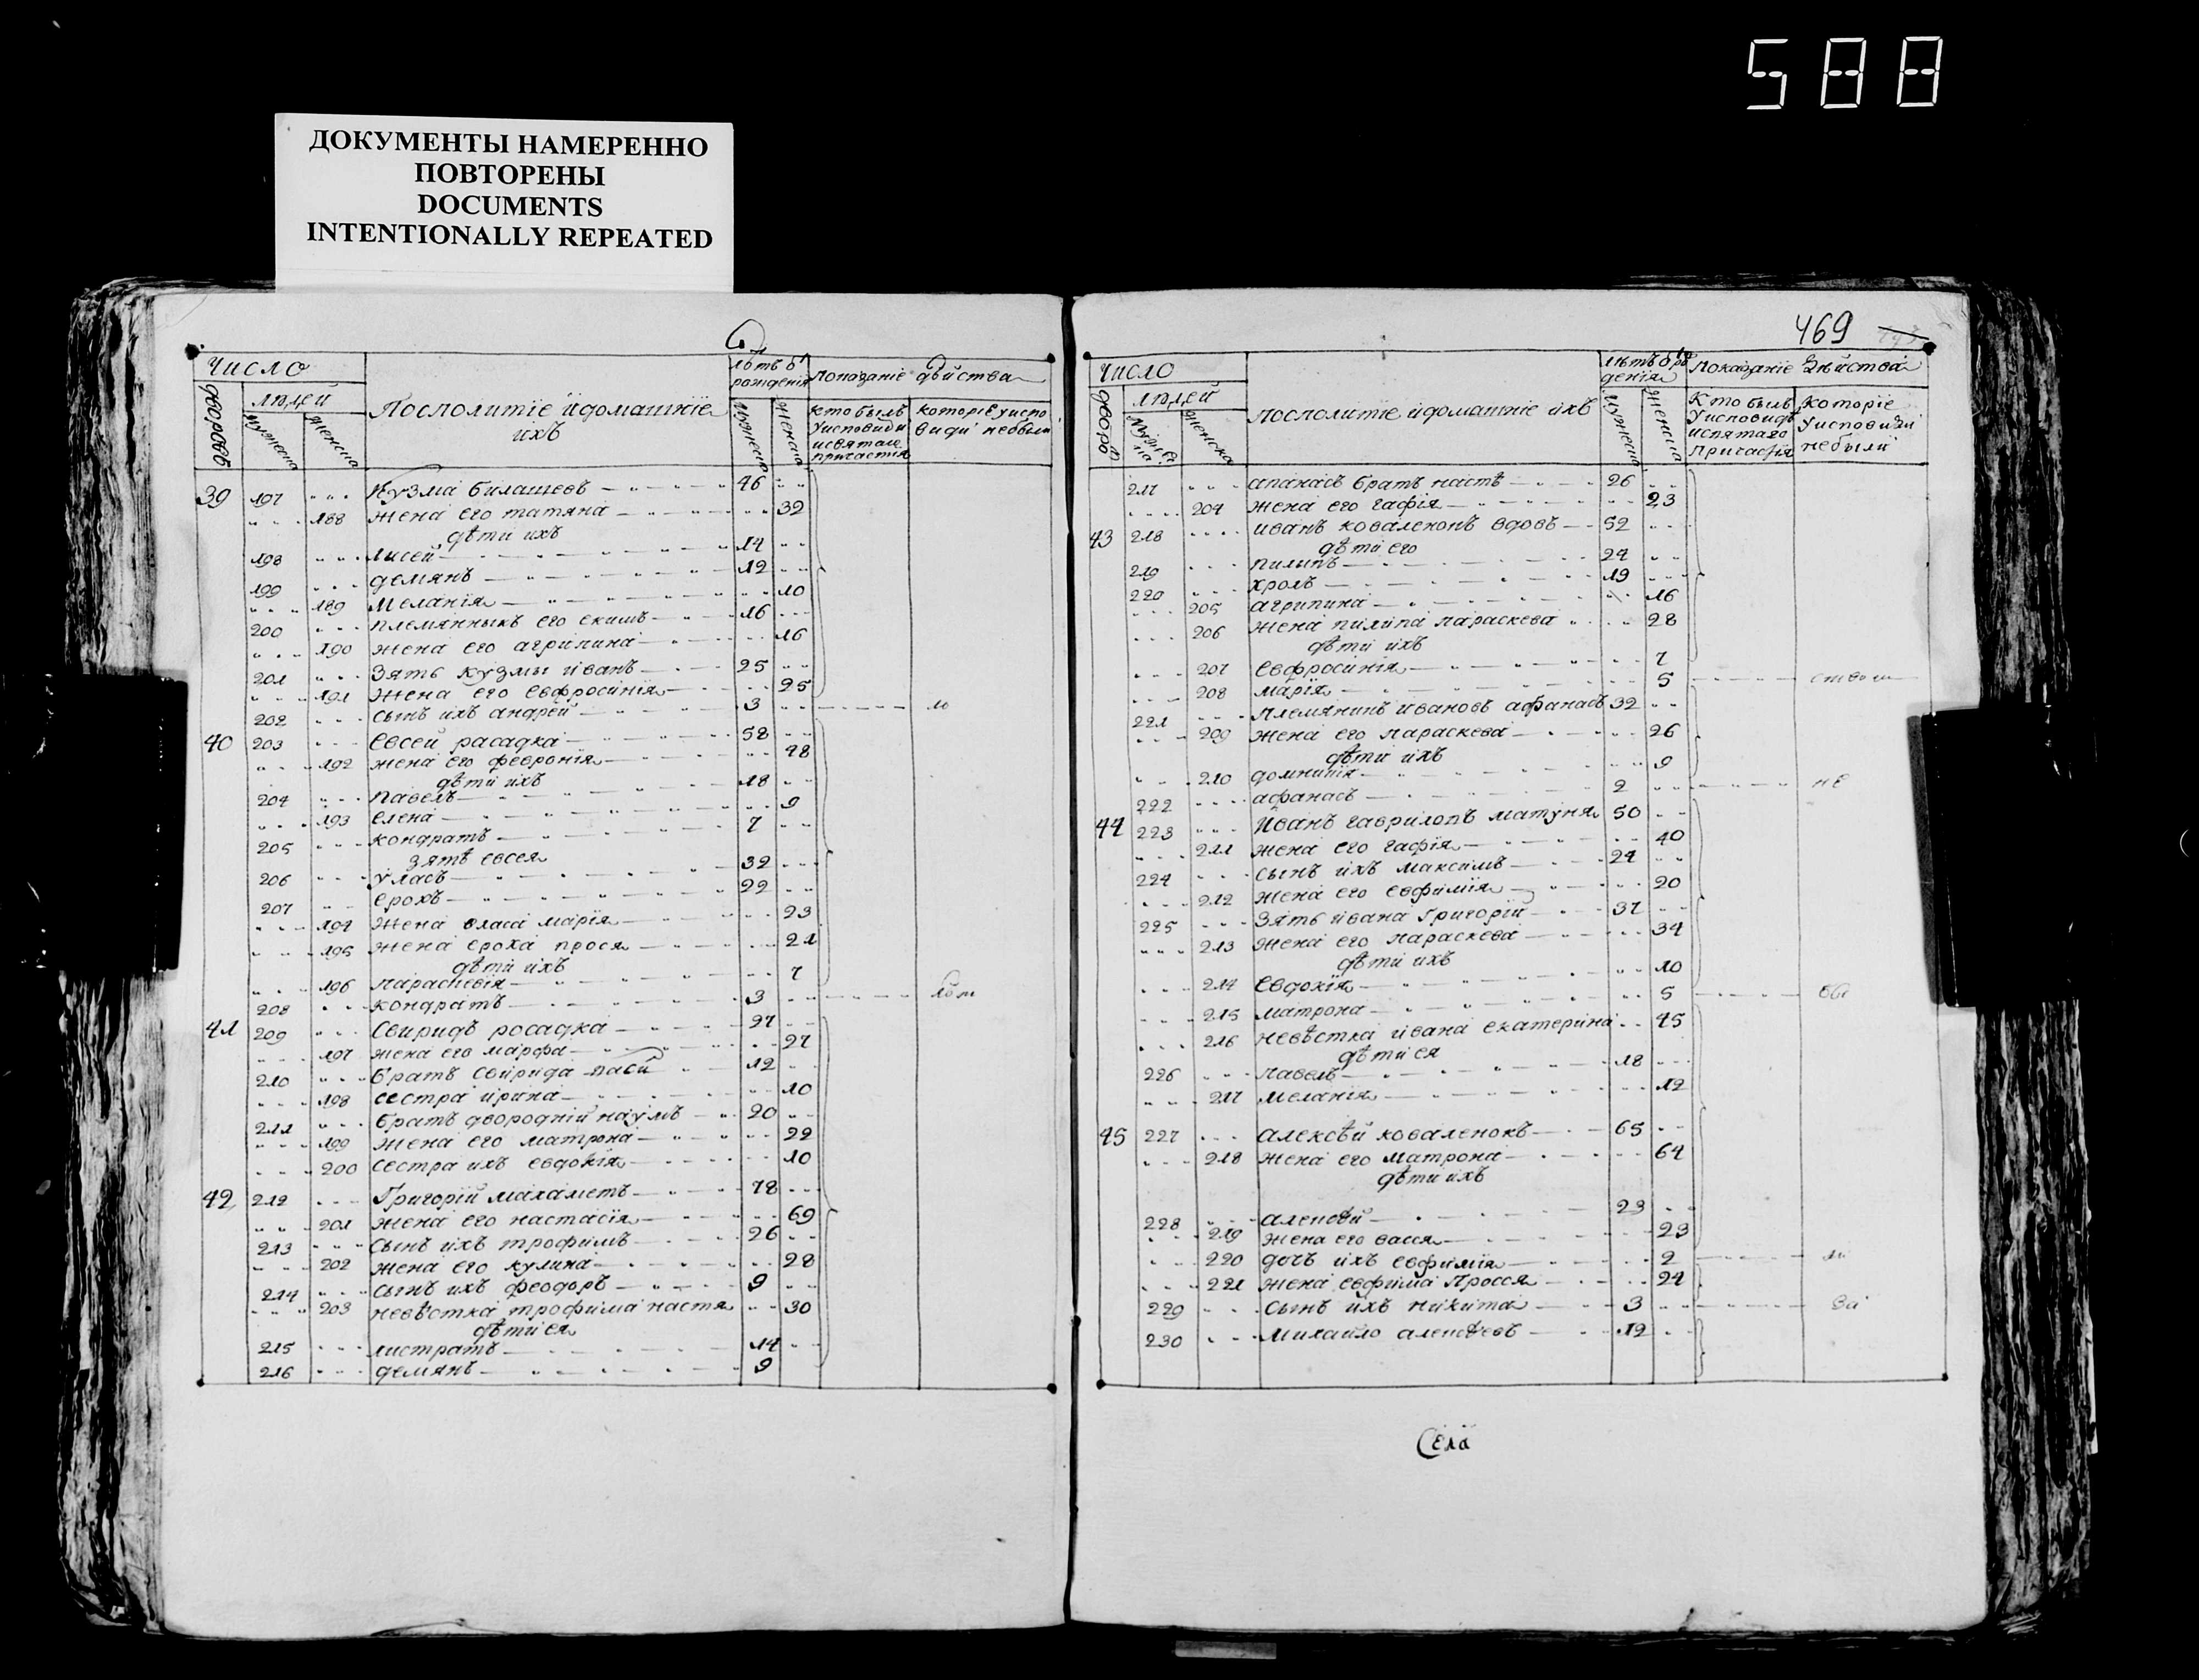 588
ДОКУМЕНТЫ НАМЕРЕННО
ПОВТОРЕНЫ
DOCUMENTS
INTENTIONALLY REPEATED
Число
людей
дворовъ
мужеска
женска
Посполитіе и домашніе
ихъ
лѣтъ ѿ
рожденія
мужеска
женска
Показаніе дѣйства
кто былъ
у исповиди
и святаго
причастія
которіе у испо
види не были
39 197 Кузма билашевъ 46
188 жена его татяна 32
дѣти ихъ
198 лисей 14
199 демянъ 12
189 Меланія 10
200 племянныкъ его екимъ 16
190 жена его агрипина 16
201 Зять кузмы иванъ 25
191 жена его евфросинія 25
202 сынъ ихъ андрей 3
40 203 Евсей расадка 58
192 жена его февронія 48
дѣти ихъ
204 павелъ 18
193 елена 9
205 кондратъ 7
зятѣ евсея
206 уласъ 32
207 ерохъ 22
194 жена власа марія 23
195 жена ероха прося 21
дѣти ихъ
196 параскевія 7
208 кондратъ 3
41 209 Свиридъ росадка 27
197 жена его марфа 27
210 братъ свирида 12
198 сестра ирина 10
211 братъ двородній наумъ 20
199 жена его матрона 22
200 сестра ихъ евдокія 10
42 212 Григорій махаметъ 78
201 жена его настасія 69
213 сынъ ихъ трофимъ 26
202 жена его кулина 28
214 сынъ ихъ феодоръ 9
203 невѣстка трофима настя 30
дѣти ея
215 листратъ 14
216 демянъ 9
469
Число
людей
дворовъ
мужеска
женска
Посполитіе и домашніе ихъ
лѣтъ ѿ рож
денія
мужеска
женска
Показаніе дѣйства
Кто былъ
у исповиди
и святаго
Причастія
Которіе
у исповиди
не были
217 апанасъ братъ настѣ 26
204 жена его гафія 23
43 218 иванъ коваленокъ вдовъ 52
дѣти его
219 пилипъ 24
220 хролъ 19
205 агрипина 16
206 жена пилипа параскева 28
дѣти ихъ
207 Евфросинія 7
208 марія 5
221 племяникъ ивановъ афанасъ 32
209 жена его параскева 26
дѣти ихъ
210 домникія 9
222 афанасъ 2 не
44 223 Иванъ гавриловъ матуня 50
211 жена его гафія 40
224 сынъ ихъ максимъ 24
212 жена его евфимія 20
225 Зять ивана григорій 37
213 жена его параскева 34
дѣти ихъ
214 Евдокія 10
215 матрона 5
216 невѣстка ивана екатерина 45
дѣти ея
226 павелъ 18
217 меланія 12
45 227 Алексѣй коваленокъ 65
218 жена его матрона 64
дѣти ихъ
228 алексѣй 23
219 жена его васся 23
220 дочъ ихъ евфимія 2
221 жена евфима Прося 24
229 сынъ ихъ никита 3 за
230 Михайло алексѣевъ 12
Села